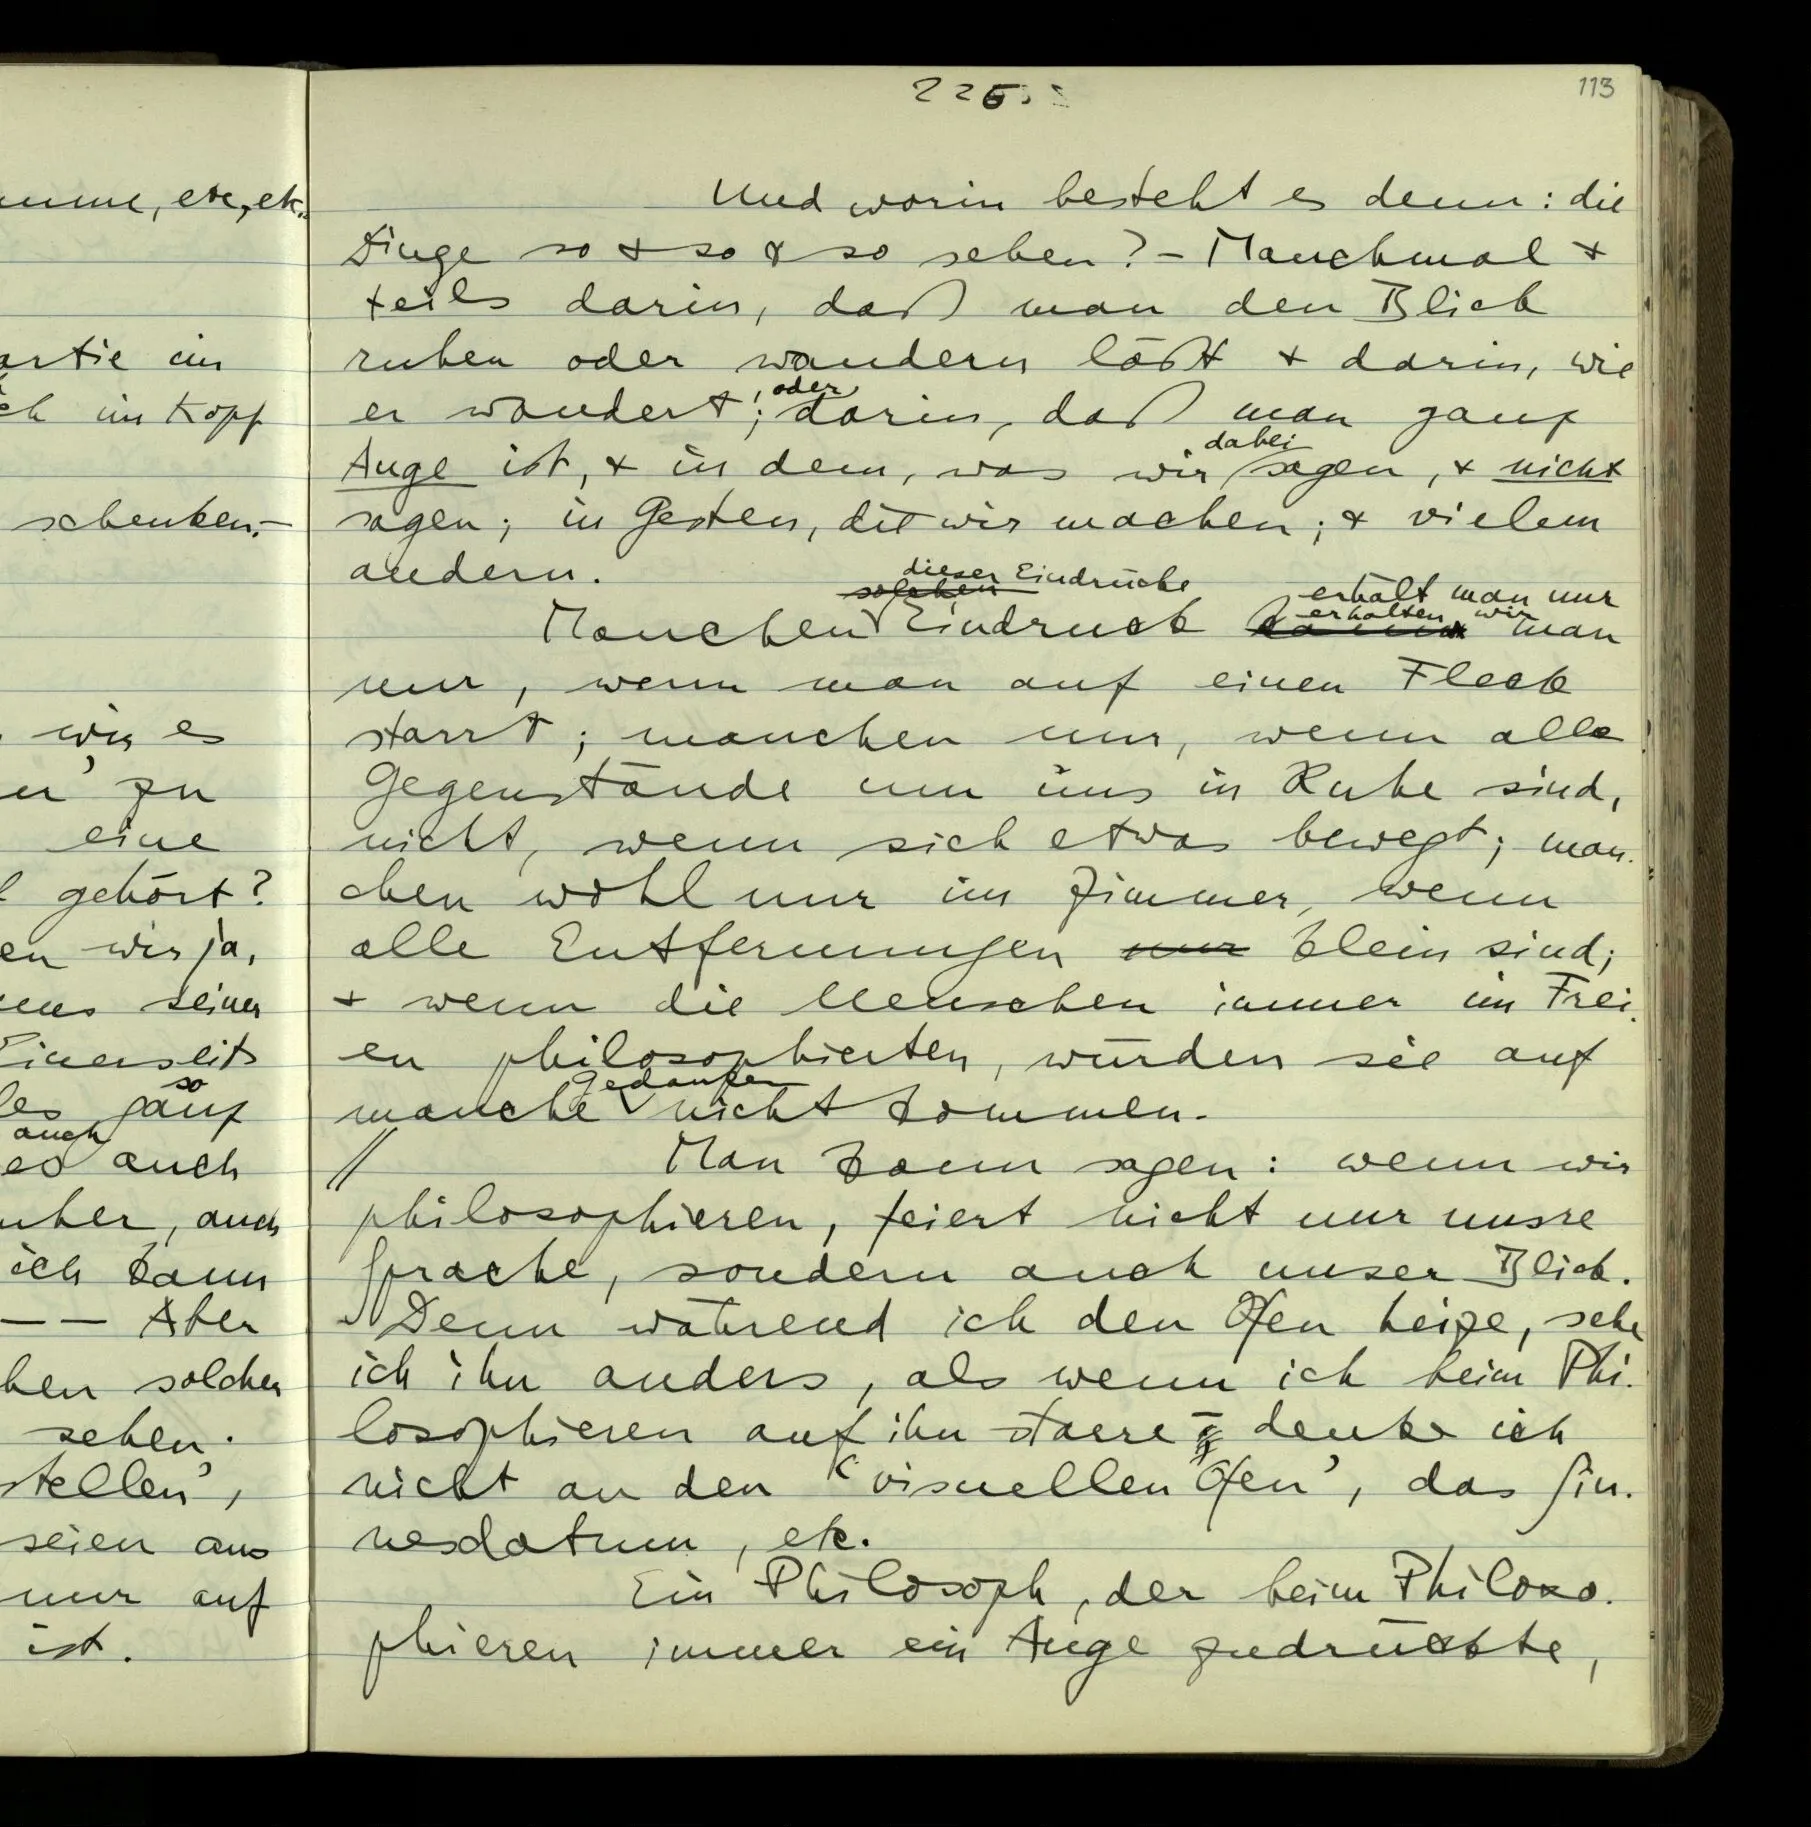 225
113
Und worin besteht es denn: die
Dinge so & so & so sehen? – Manchmal &
teils darin, daß man den Blick
ruhen oder wandern läßt & darin, wie
oder
er wandert; darin, daß man ganz
dabei
Auge ist, & in dem, was wir sagen, & nicht
sagen; in Gesten, die wir machen; & vielem
andern.
dieser Eindrücke
solchen
erhält man nur
erhalten wir
Manchen Eindruck man
nur, wenn man auf einen Fleck
starrt; manchen nur, wenn alle
Gegenstände um uns in Ruhe sind,
nicht, wenn sich etwas bewegt; man-
chen wohl nur im Zimmer, wenn
alle Entfernungen nur klein sind;
& wenn die Menschen immer im Frei-
en philosophierten, würden sie auf
Gedanken
manche nicht kommen.
// Man kann sagen: wenn wir
philosophieren, feiert nicht nur unsre
Sprache, sondern auch unser Blick.
Denn während ich den Ofen heize, sehe
ich ihn anders, als wenn ich beim Phi-
losophieren auf ihn starre – denke ich
nicht an den ‘visuellen Ofen’, das Sin-
nesdatum, etc.
Ein Philosoph, der beim Philoso-
phieren immer ein Auge zudrückte,
etc, etc.
im Kopf
schenken. –
wir es
zu
eine
gehört?
wir ja,
seiner
Einerseits
so
ganz
auch
auch
auch
ich kann
– – Aber
solcher
sehen.
seien aus
nur auf
ist.